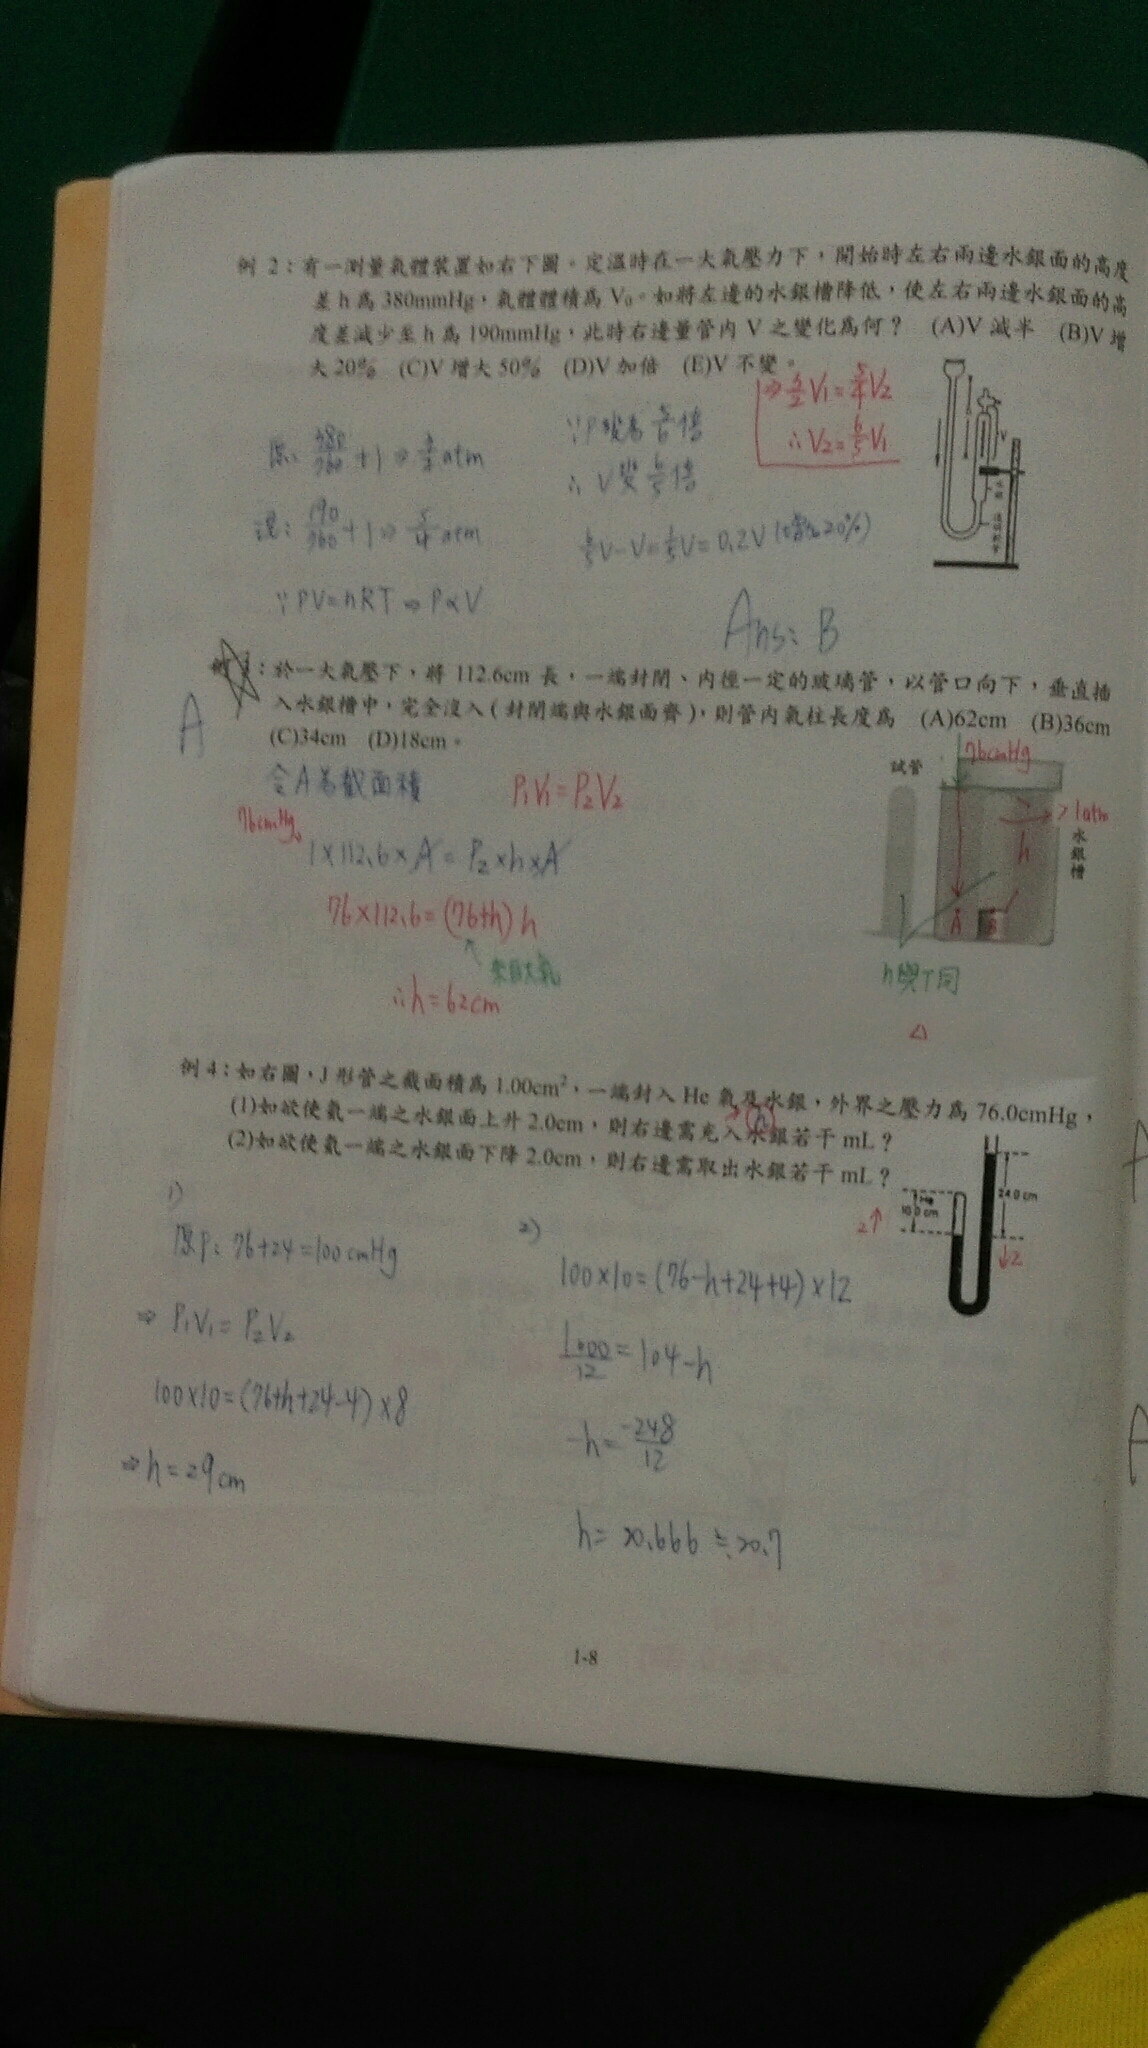 例 2：有一測量氣體裝置如右下圖。定溫時在一大氣壓力下，開始時左右兩邊水銀面的高度
差 h 為 380mmHg，氣體體積為 V₀。如將左邊的水銀槽降低，使左右兩邊水銀面的高
度差減少至 h 為 190mmHg，此時右邊量管內 V 之變化為何？ (A)V 減半 (B)V 增
大 20% (C)V 增大 50% (D)V 加倍 (E)V 不變。
⇒ V₁= V₂
∴V₂=6/5 V₁
原: 380/760 +1 ⇒ atm
現: 190/760 +1 ⇒ 5/4 atm
∵PV=nRT ⇒ P∝V
∵P變為5/6倍
∴V變6/5倍
6/5V-V=1/5V=0.2V (增加20%)
Ans: B
V
水銀
例 ：於一大氣壓下，將 112.6cm 長，一端封閉、內徑一定的玻璃管，以管口向下，垂直插
入水銀槽中，完全沒入（封閉端與水銀面齊），則管內氣柱長度為 (A)62cm (B)36cm
(C)34cm (D)18cm。
A
令A為截面積
P₁V₁=P₂V₂
76cmHg
1×112.6×A=P₂×h×A
76×112.6=(76+h)h
來自大氣
∴h=62cm
試管
76cmHg
>1atm
h
水銀槽
A
B
n與T同
△
例 4：如右圖，J 形管之截面積為 1.00cm²，一端封入 He 氣及水銀，外界之壓力為 76.0cmHg，
(1)如欲使氣一端之水銀面上升 2.0cm，則右邊需充入水銀若干 mL？
(2)如欲使氣一端之水銀面下降 2.0cm，則右邊需取出水銀若干 mL？
h
He
10.0 cm
24.0 cm
2↑
↓2
1)
原P: 76+24=100cmHg
⇒ P₁V₁=P₂V₂
100×10=(76+h+24-4)×8
⇒h=29cm
2)
100×10=(76-h+24+4)×12
1000/12=104-h
-h=-248/12
h=20.666≒20.7
1-8